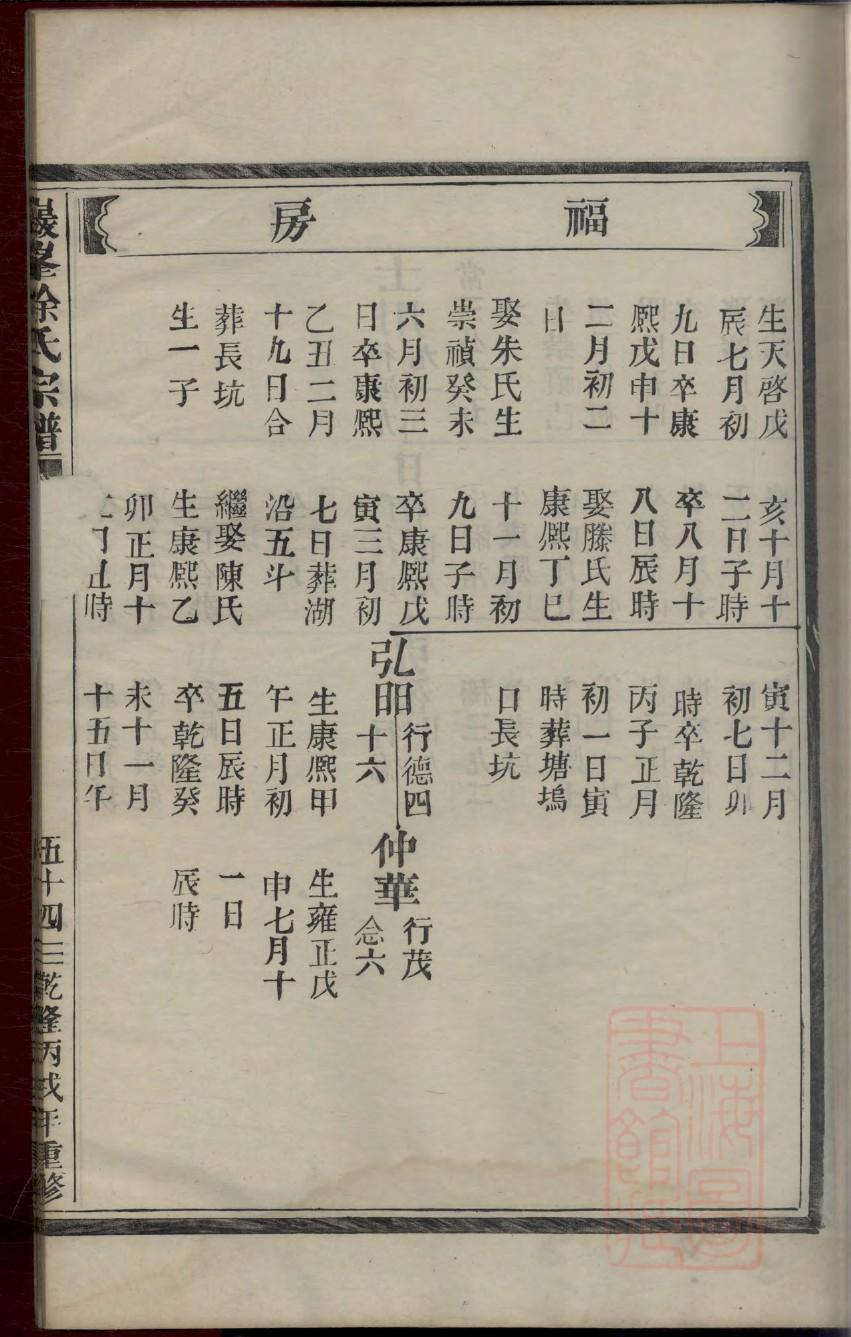 福房
生天啓戊
辰七月初
九日卒康
熙戊申十
二月初二
日
娶朱氏生
崇禎癸未
六月初三
日卒康熙
乙丑二月
十九日合
葬長坑
生一子
亥十月十
二日子時
卒八月十
八日辰時
娶滕氏生
康熙丁巳
十一月初
九日子時
卒康熙戊
寅三月初
七日葬湖
沿五斗
繼娶陳氏
生康熙乙
卯正月十
丑時
寅十二月
初七日卯
時卒乾隆
丙子正月
初一日寅
時葬塘塢
口長坑
弘明 行德四
十六
生康熙甲
午正月初
五日辰時
卒乾隆癸
未十一月
十五日午
仲華 行茂
念六
生雍正戊
申七月十
一日
辰時
巖峯徐氏宗譜
伍十四 乾隆丙戌年重修
上海圖書館藏